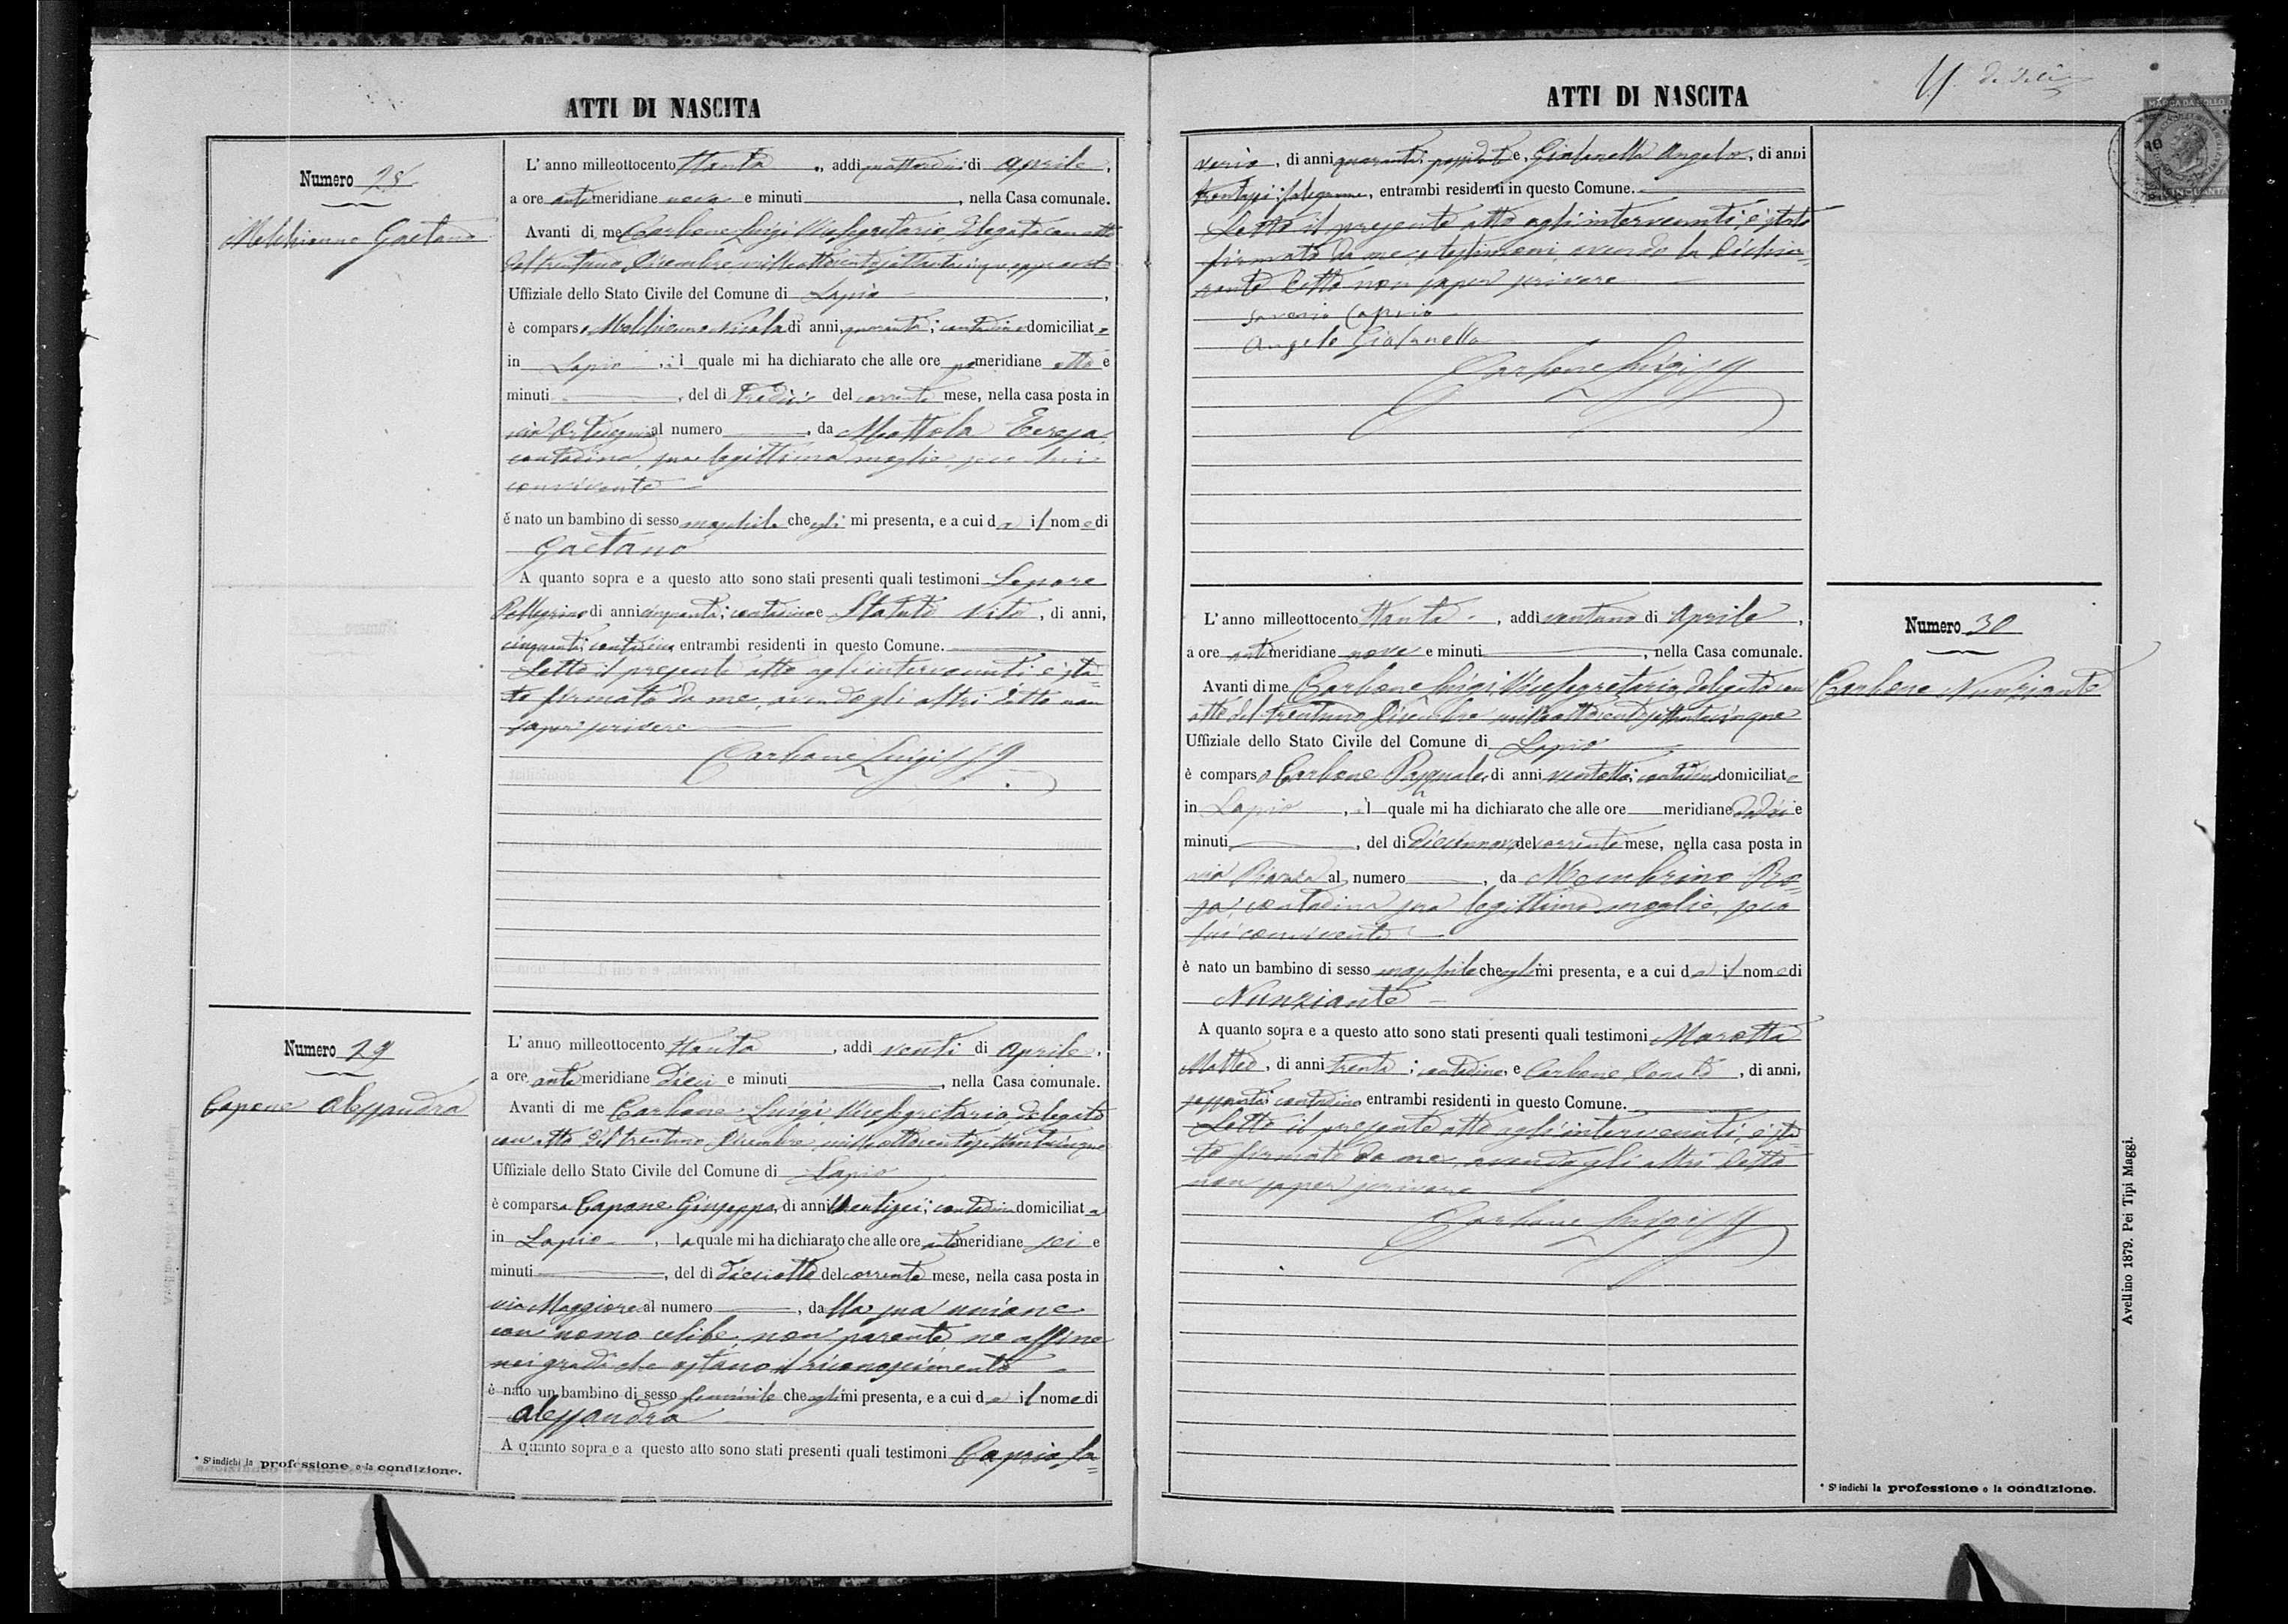 ATTI DI NASCITA
Numero 28
Melchionno Gaetano
L' anno milleottocento ttanta, addì quattordici di Aprile,
a ore antimeridiane nove e minuti, nella Casa comunale.
Avanti di me Carbone Luigi Vicesegretario, delegato con atto
del trentuno Dicembre milleottocentosettantacinque, approvato
Uffiziale dello Stato Civile del Comune di Lapio,
è comparso Melchionno Nicola di anni, quaranta; contadino domiciliato
in Lapio, il quale mi ha dichiarato che alle ore pomeridiane otto e
minuti, del dì tredici del corrente mese, nella casa posta in
via al numero, da Mottola Teresa,
contadina, sua legittima moglie, seco lui
convivente
è nato un bambino di sesso maschile che egli mi presenta, e a cui dà il nome di
Gaetano
A quanto sopra e a questo atto sono stati presenti quali testimoni Lepore
Pellegrino di anni cinquanta; contadino e Statuto Vito, di anni,
cinquanta; contadino, entrambi residenti in questo Comune.
Letto il presente atto agli intervenuti, è sta-
to firmato da me, avendo gli altri detto non
saper scrivere
Carbone Luigi
Numero 29
Capone Alessandra
L' anno milleottocento ttanta, addì venti di Aprile,
a ore antimeridiane dieci e minuti, nella Casa comunale.
Avanti di me Carbone Luigi, Vicesegretario, delegato
con atto del trentuno Dicembre milleottocentosettantacinque
Uffiziale dello Stato Civile del Comune di Lapio
è comparsa Capone Giuseppa, di anni ventisei; contadina domiciliata
in Lapio, la quale mi ha dichiarato che alle ore antimeridiane sei e
minuti, del dì dieciotto del corrente mese, nella casa posta in
via Maggiore al numero, dalla sua unione
con uomo celibe, non parente, nè affine
nei gradi che ostano il riconoscimento
è nato un bambino di sesso femminile che egli mi presenta, e a cui dà il nome di
Alessandra
A quanto sopra e a questo atto sono stati presenti quali testimoni Caprio Sa-
* S'indichi la professione o la condizione.
ATTI DI NASCITA
MARCA DA BOLLO
CINQUANTA
verio, di anni quaranta; possidente, Giofanella Angelo, di anni
trentasei; falegname, entrambi residenti in questo Comune.
Letto il presente atto agli intervenuti, è stato
firmato da me, e testimoni, avendo la dichia-
rante detto non saper scrivere
Saverio Caprio
Angelo Giofanella
Carbone Luigi
Numero 30
Carbone Nunziante
L' anno milleottocento ttanta, addì ventuno di Aprile,
a ore antimeridiane nove e minuti, nella Casa comunale.
Avanti di me Carbone Luigi, Vicesegretario, delegato con
atto del trentuno Dicembre milleottocentosettantacinque
Uffiziale dello Stato Civile del Comune di Lapio
è comparso Carbone Pasquale, di anni ventotto; contadino domiciliato
in Lapio, il quale mi ha dichiarato che alle ore meridiane dodici e
minuti, del dì diecinnove del corrente mese, nella casa posta in
via Piazza al numero, da Membrino Ro-
sa; contadina sua legittima moglie, seco
lui convivente
è nato un bambino di sesso maschile che egli mi presenta, e a cui dà il nome di
Nunziante
A quanto sopra e a questo atto sono stati presenti quali testimoni Marotta
Matteo, di anni trenta; contadino, e Carbone Donato, di anni,
sessanta; contadino entrambi residenti in questo Comune.
Letto il presente atto agli intervenuti, è sta-
to firmato da me, avendo gli altri detto
non saper scrivere
Carbone Luigi
* S'indichi la professione o la condizione.
Avellino 1879. Pei Tipi Maggi.